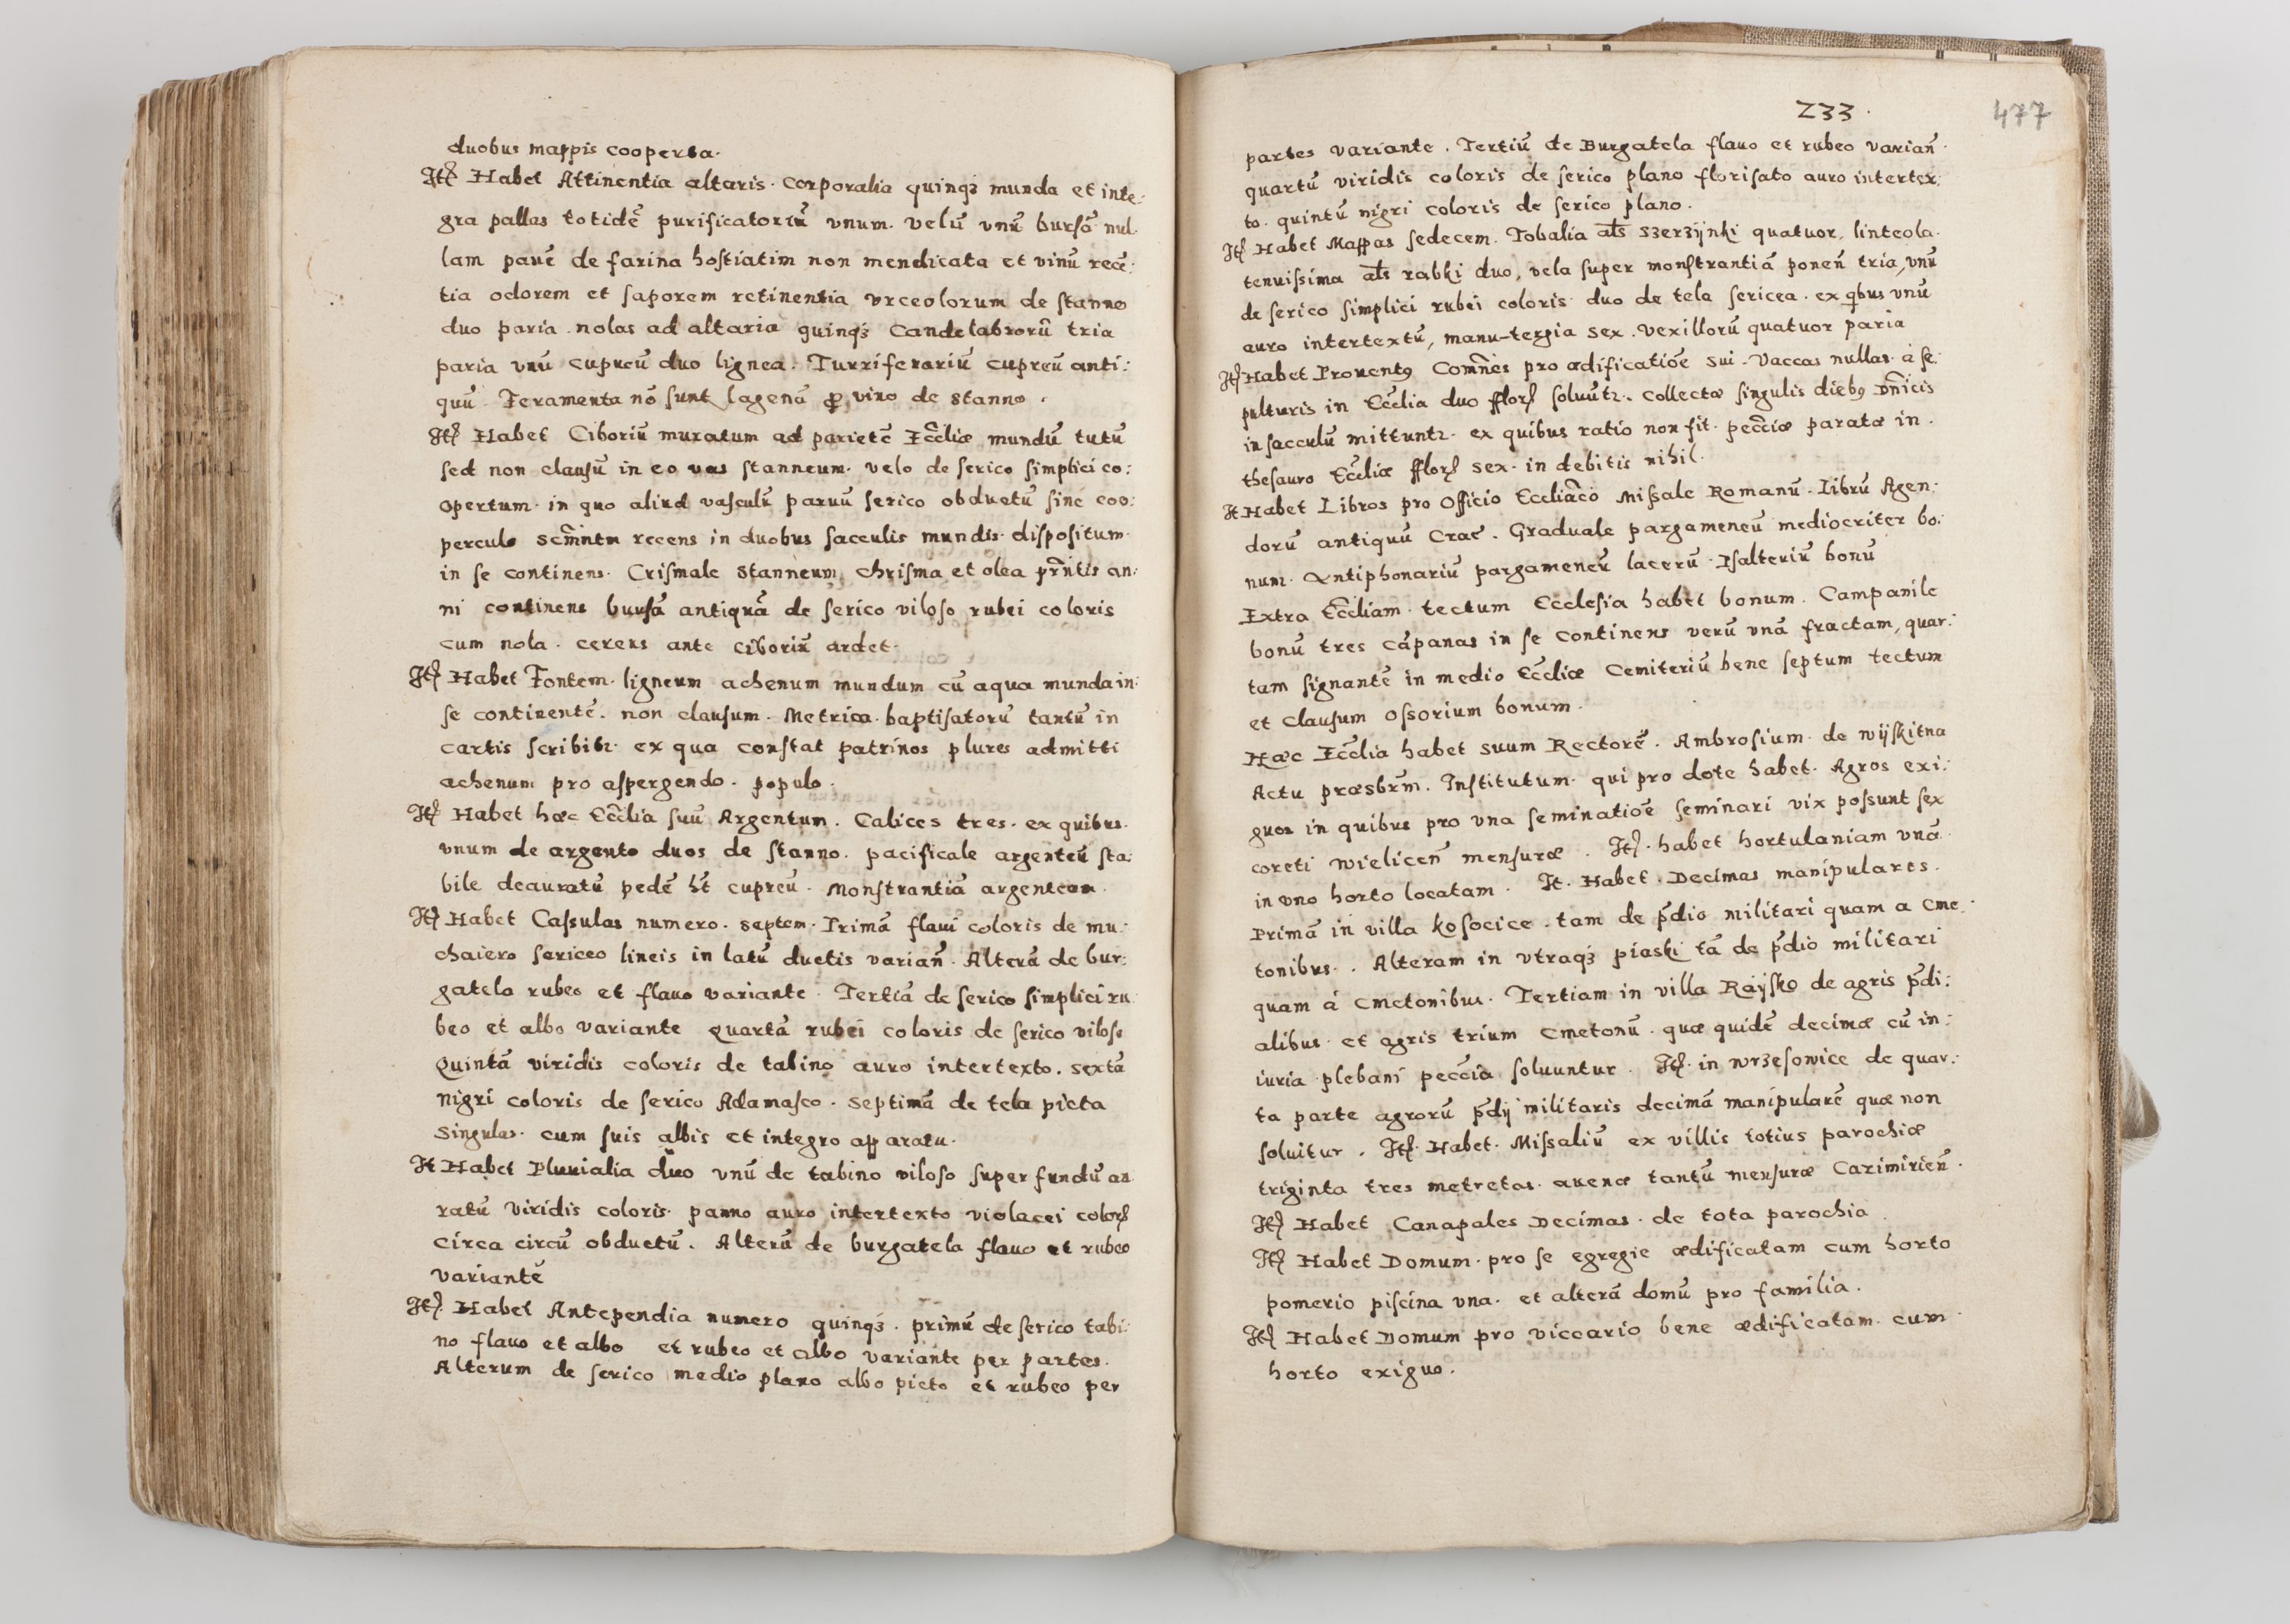 duobus mappis cooperta.
Itꝫ Habet Attinentia altaris. Corporalia quinqꝫ munda et inte:
gra pallas totidē purificatoriū vnum. velū vnū bursā nul:
lam panē de farina hostiatim non mendicata et vinū recē:
tia odorem et saporem retinentia vrceolorum de stanno
duo paria. nolas ad altaria quinqꝫ Candelabrorū tria
paria vnū cupreū duo lignea. Turriferariū cupreū anti:
quū. Feramenta nō sunt lagenā ꝓ vino de stanno.
Itꝫ Habet Ciboriū muratum ad parietē Ecc̄liæ mundū tutū
sed non clausū in eo vas stanneum. velo de serico simplici co:
opertum. in quo aliud vasculū paruū serico obductū sine coo:
perculo scr̄mntu recens in duobus sacculis mundis. dispositum.
in se continens. Crismale stanneum, chrisma et olea prn̄tis an:
ni continens bursā antiquā de serico viloso rubei coloris
cum nola. cereus ante ciboriū ardet.
Itꝫ Habet Fontem. ligneum achenum mundum cū aqua munda in:
se continentē. non clausum. Metrica. baptisatorū tantū in
cartis scribitr. ex qua constat patrinos plures admitti
achenum pro aspergendo. populo.
Itꝫ Habet hæc Ecc̄lia suū Argentum. Calices tres. ex quibus.
vnum de argento duos de stanno. pacificale argenteū sta:
bile deauratū pedē ht̄ cupreū. Monstrantiā argenteam.
Itꝫ Habet Cassulas numero. septem. Primā flaui coloris de mu:
chaiero sericeo lineis in latū ductis varian̄. Alterā de bur:
gatela rubeo et flauo variante. Tertiā de serico simplici ru:
beo et albo variante quartā rubei coloris de serico viloso
Quintā viridis coloris de tabino auro intertexto. sextā
nigri coloris de serico Adamasco. septimā de tela picta
singulas. cum suis albis et integro apparatu.
It Habet Pluuialia duo vnū de tabino viloso super fundū au
ratū viridis coloris. panno auro intertexto violacei colorꝭ
circa circū obductū. Alterū de burgatela flauo et rubeo
variantē
Itꝫ Habet Antependia numero quinqꝫ. primū de serico tabi:
no flauo et albo et rubeo et albo variante per partes.
Alterum de serico medio plano albo picto et rubeo per
233.
477
partes variante. Tertiū de Burgatela flauo et rubeo varian̄.
quartū viridis coloris de serico plano florisato auro intertex:
to. quintū nigri coloris de serico plano.
Itꝫ Habet Mappas sedecem. Tobalia al̄s szerzijnki quatuor, linteola.
tenuissima al̄s rabki duo, vela super monstrantiā ponen̄ tria, vnū
de serico simplici rubei coloris. duo de tela sericea. ex qbus vnū
auro intertextū, manu-tergia sex. vexillorū quatuor paria
Itꝫ Habet Prouentꝰ Com̄nes pro ædificatiōe sui. Vaccas nullas. à se:
pulturis in Ecc̄lia duo fflorꝭ soluūtr. Collectæ singulis diebꝰ Dn̄icis
in sacculū mittuntr. ex quibus ratio non fit. pecc̄iæ paratæ in.
thesauro Ecc̄liæ fflorꝭ sex. in debitis nihil.
It Habet Libros pro Officio Eccliac̄o Missale Romanū. Librū Agen:
dorū antiquū Crac̄. Graduale pargameneū mediocriter bo:
num. Antiphonariū pargameneū lacerū. Psalteriū bonū
Extra Ecc̄liam. tectum Ecclesia habet bonum. Campanile
bonū tres cāpanas in se continens verū vnā fractam, quar:
tam signantē in medio Ecc̄liæ Cemiteriū bene septum tectum
et clausum ossorium bonum.
Hæc Ecc̄lia habet suum Rectorē. Ambrosium. de wijskitna
Actu præsbr̄m. Institutum. qui pro dote habet. Agros exi:
guos in quibus pro vna seminatiōe seminari vix possunt sex
coreti wielicen̄ mensuræ. Itꝫ. habet hortulaniam vnā.
in vno horto locatam. It. Habet. Decimas manipulares.
Primā in villa kosocice. tam de p̄dio militari quam a Cme:
tonibus. Alteram in vtraqꝫ piaski tā de p̄dio militari
quam à cmetonibus. Tertiam in villa Raijsko de agris p̄di:
alibus. et agris trium cmetonū. quæ quidē decimæ cū in:
iuria plebani pecc̄ia soluuntur. Itꝫ. in wrzesowice de quar:
ta parte agrorū p̄dij militaris decimā manipularē quæ non
soluitur. Itꝫ. Habet. Missaliū ex villis totius parochiæ
triginta tres metretas. auenæ tantū mensuræ Cazimirien̄.
Itꝫ Habet Canapales Decimas. de tota parochia.
Itꝫ Habet Domum. pro se egregie ædificatam cum horto
pomerio piscina vna. et alterā domū pro familia.
Itꝫ Habet Domum pro viccario bene ædificatam. cum
horto exiguo.